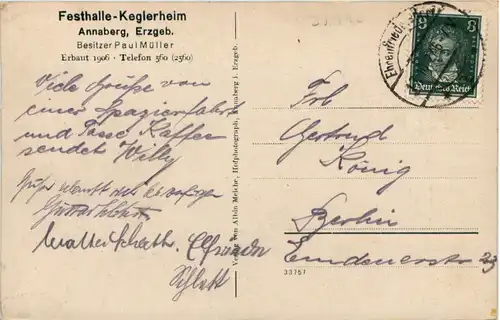 Festhalle-Keglerheim
Annaberg, Erzgeb.
Besitzer Paul Müller
Erbaut 1906 - Telefon 560 (2560)
Viele Grüße von
einer Spazierfahrt
und Tasse Kaffee
sendet Willy
Walter Elfriede
Schlott
Verlag von Albin Meiche, Hofphotograph, Annaberg i. Erzgeb.
8 8
Deutsches Reich
Frl
Gertrud
König
Berlin
Emdenerstr 23
33757